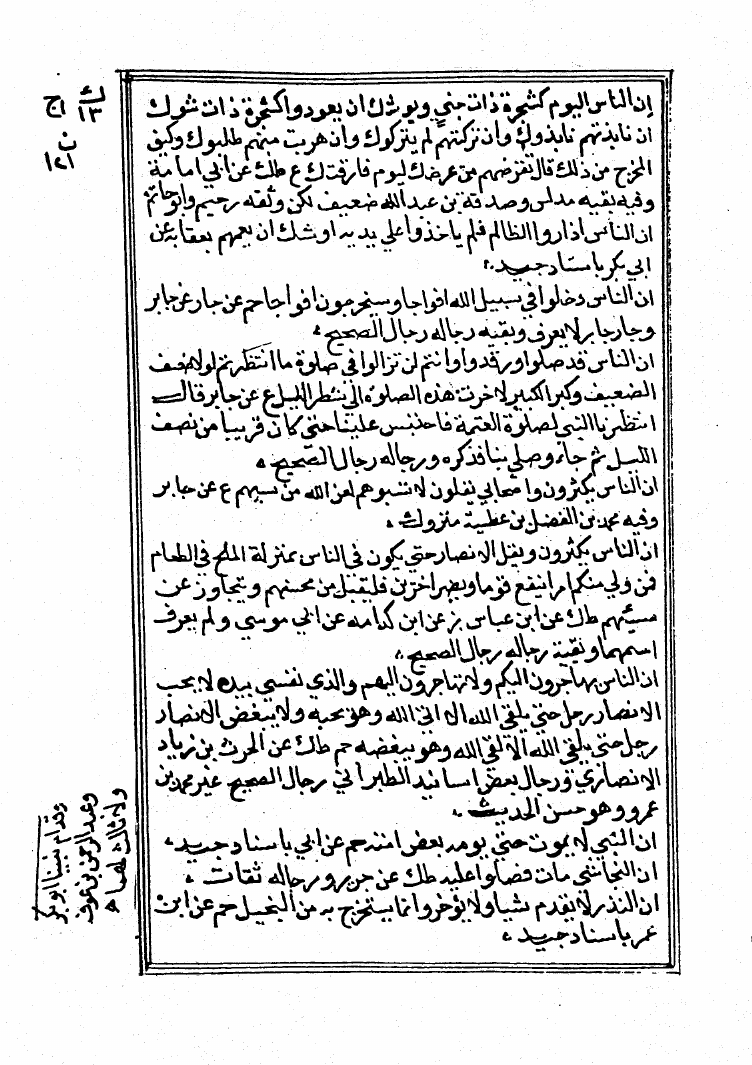 إن الناس اليوم كشجرة ذات جنى ويوشك ان يعودوا كشجرة ذات شوك
ان نابذتهم نابذوك وان تركتهم لم يتركوك وان هربت منهم طلبوك وكيف
المخرج من ذلك قال تقرضهم من عرضك ليوم فاقتك ع طك عن ابي امامة
وفيه بقيه مدلس وصدقة بن عبد الله ضعيف لكن وثقه رحيم وابو حاتم
ان الناس اذا روا الظالم فلم ياخذوا علي يديه اوشك ان يعمهم بعقابه عن
ابي بكر باسناد جيد
ان الناس دخلوا في سبيل الله افواجا وسيخرجون افواجا حم عن جار عن جابر
وجار جابر لا يعرف وبقيه رجاله رجال الصحيح
ان الناس قد صلوا ورقدوا وانتم لن تزالوا في صلوة ما انتظرتم لولا ضعف
الضعيف وكبر الكبير لاخرت هذه الصلوة الى شطر الليل ع عن جابر قال
انتظرنا النبي لصلوة العتمة فاحتبس علينا حتى كان قريبا من نصف
الليل ثم جاء وصلي بنا فذكره ورجاله رجال الصحيح
ان الناس يكثرون واصحابي يقلون لا تسبوهم لعن الله من سبهم ع عن جابر
وفيه محمد بن الفضل بن عطية متروك
ان الناس يكثرون ويقل الانصار حتى يكون في الناس بمنزلة الملح في الطعام
فمن ولي منكم امرا ينفع قوما ويضر اخرين فليقبل من محسنهم ويتجاوز عن
مسيئهم طك عن ابن عباس بز عن ابن كدامه عن ابي موسي ولم يعرف
اسمهما وبقية رجاله رجال الصحيح
ان الناس يهاجرون اليكم ولا تهاجرون اليهم والذي نفسي بيده لا يحب
الانصار رجل حتى يلقى الله الا لقى الله وهو يحبه ولا يبغض الانصار
رجل حتى يلقى الله الا لقي الله وهو يبغضه حم طك عن الحرث بن زياد
الانصاري ورجال بعض اسانيد الطبراني رجال الصحيح غير محمد بن
عمرو وهو حسن الحديث
ان النبي لا يموت حتى يومه بعض امته حم عن ابي باسناد جيد
ان النجاشي مات فصلوا عليه طك عن جرير ورجاله ثقات
ان النذر لا يقدم شيا ولا يؤخر وانما يستخرج به من البخيل حم عن ابن
عمر باسناد جيد
ك ١٣
ج
ن
١٢١
وقد ام نبينا ابو بكر
وعبد الرحمن بن عوف
ولا ثالث لهما